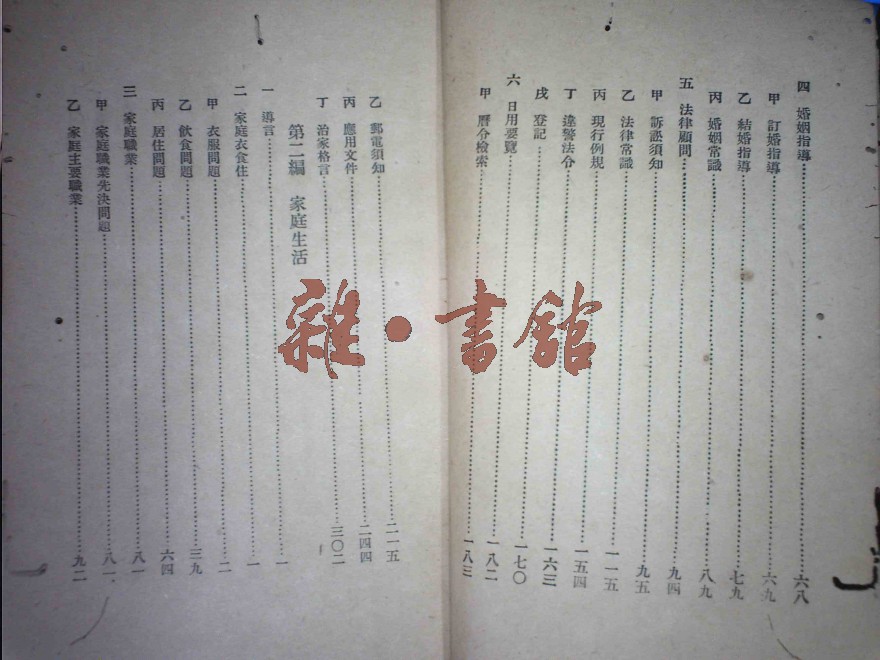 四 婚姻指導……六八
甲 訂婚指導……六九
乙 結婚指導……七九
丙 婚姻常識……八九
五 法律顧問……九四
甲 訴訟須知……九五
乙 法律常識……一一五
丙 現行例規……一五四
丁 違警法令……一六三
戌 登記……一七〇
六 日用要覽……一八二
甲 曆令檢索……一八三
乙 郵電須知……二一五
丙 應用文件……二四四
丁 治家格言……三〇二
第二編 家庭生活
一 導言……一
二 家庭衣食住……一
甲 衣服問題……二
乙 飲食問題……三九
丙 居住問題……六四
三 家庭職業……八一
甲 家庭職業先決問題……八一
乙 家庭主要職業……九二
雜·書館